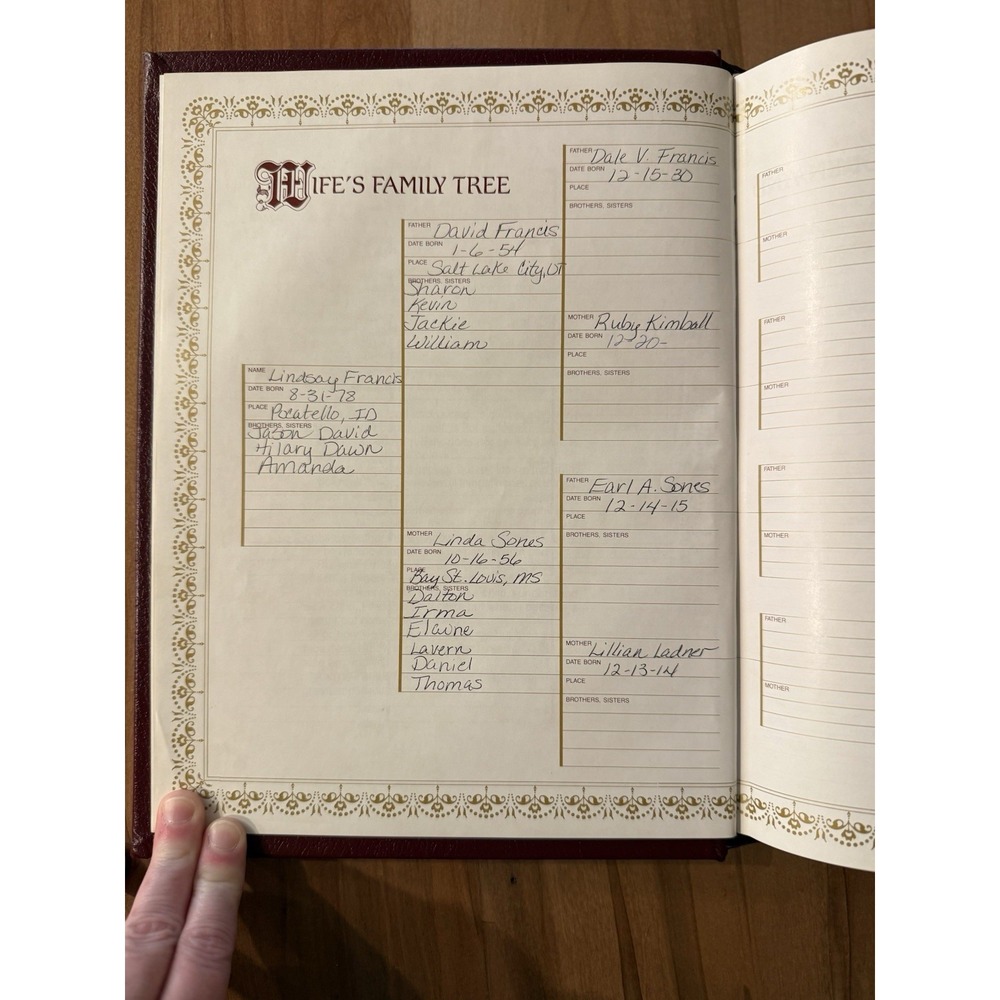 WIFE'S FAMILY TREE
NAME Lindsay Francis
DATE BORN 8-31-78
PLACE Pocatello, ID
BROTHERS, SISTERS
Jason David
Hilary Dawn
Amanda
FATHER David Francis
DATE BORN 1-6-54
PLACE Salt Lake City, UT
BROTHERS, SISTERS
Sharon
Kevin
Jackie
William
MOTHER Linda Sones
DATE BORN 10-16-56
PLACE Bay St. Louis, MS
BROTHERS, SISTERS
Dalton
Irma
Elaine
Lavern
Daniel
Thomas
FATHER Dale V. Francis
DATE BORN 12-15-30
PLACE
BROTHERS, SISTERS
MOTHER Ruby Kimball
DATE BORN 12-20-
PLACE
BROTHERS, SISTERS
FATHER Earl A. Sones
DATE BORN 12-14-15
PLACE
BROTHERS, SISTERS
MOTHER Lillian Ladner
DATE BORN 12-13-14
PLACE
BROTHERS, SISTERS
FATHER
MOTHER
FATHER
MOTHER
FATHER
MOTHER
FATHER
MOTHER